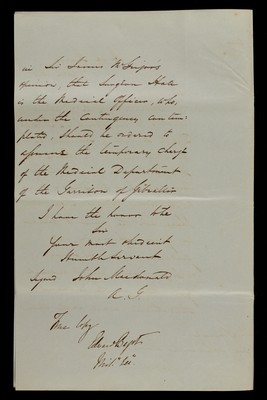 in Sir James McGrigor's
opinion, that Surgeon Hale
is the Medical Officer, who,
under the Contingency contem
plated, should be ordered to
assume the temporary charge
of the Medical Department
of the Garrison of Gibraltar
I have the honor to be
Sir
Your most obedient
Humble Servant
Signed John Macdonald
A. G.
True Copy